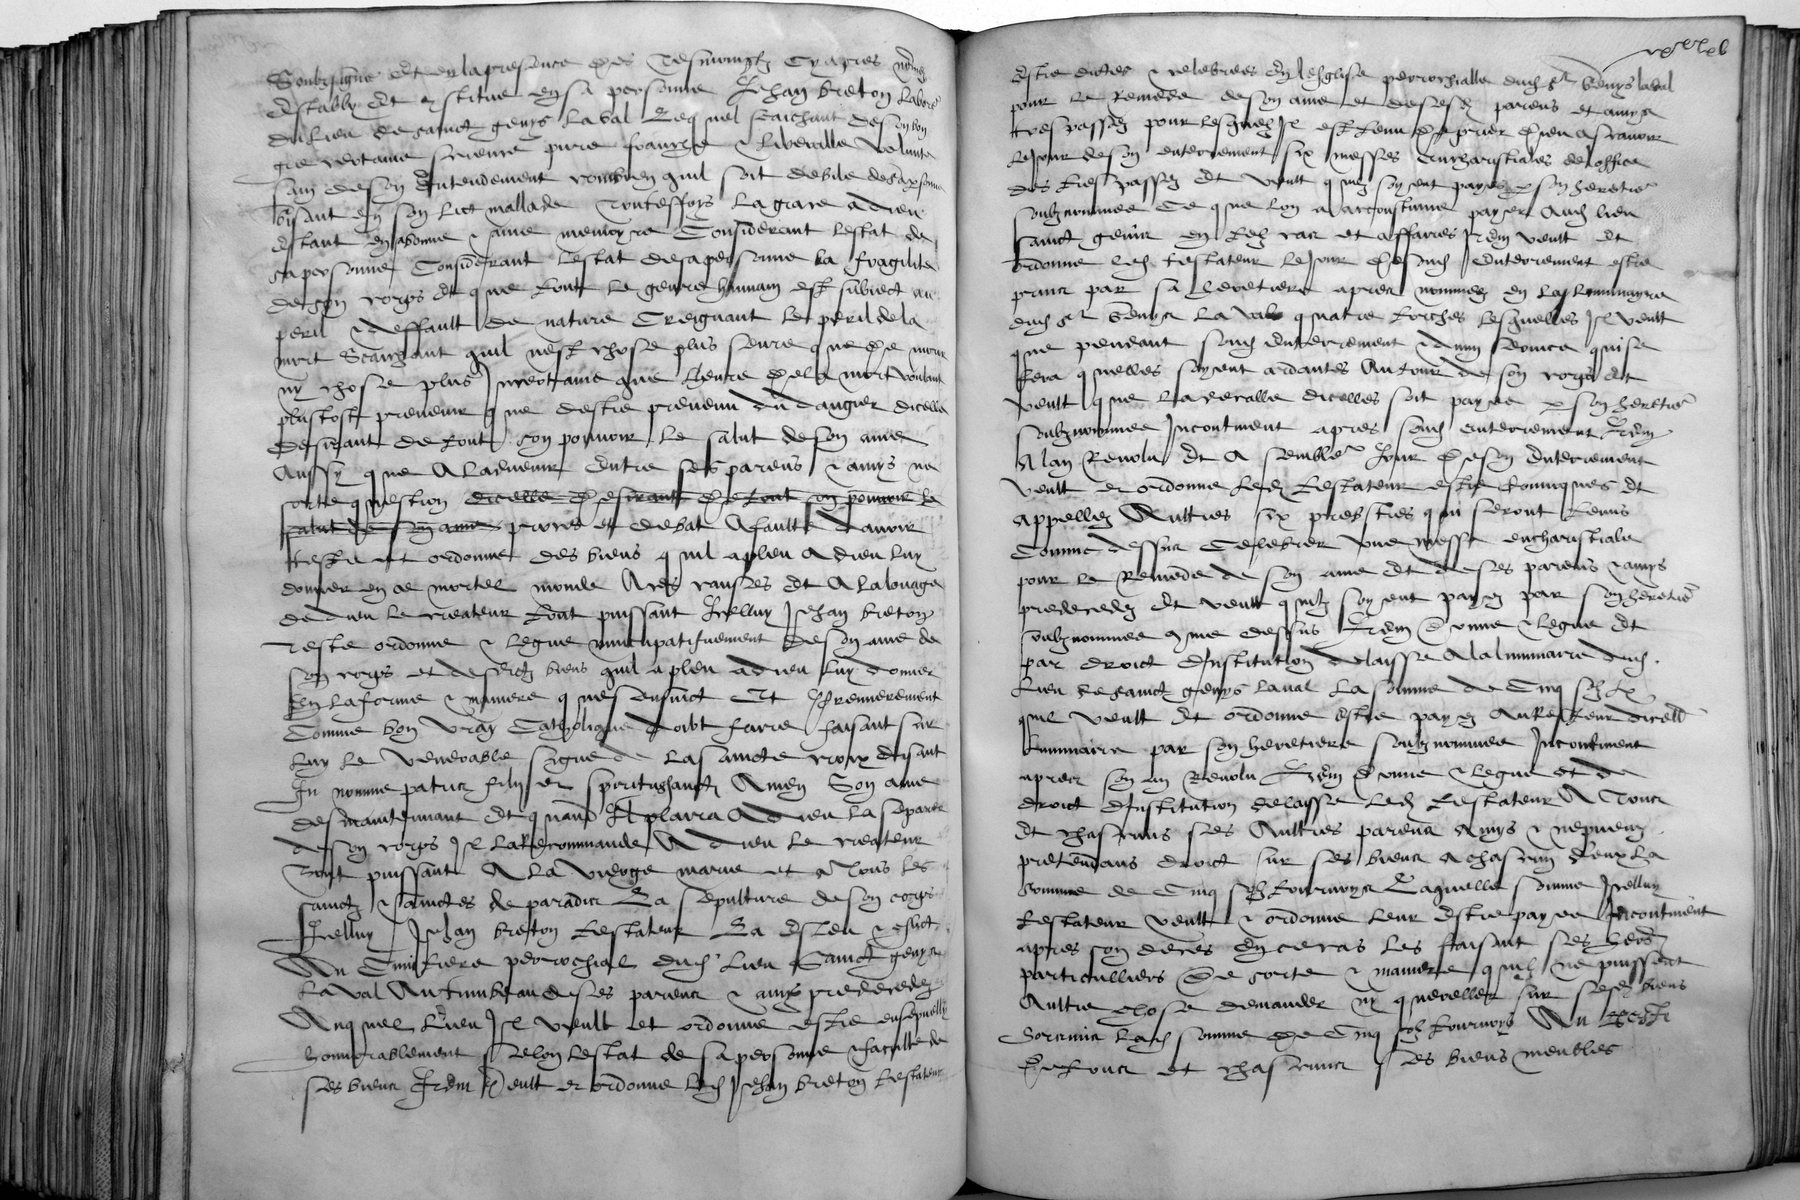 Soubzsigne et en la presence des tesmoingtz cy apres nomes
Estably et constitue en sa personne Jehan breton labore
du lieu de sainct genys laval Lequel scaichant de son bon
gre certaine science pure franche & liberalle volunte
sain de son Entendement combien quil soit debile de sa personne
Gisant en son lict mallade Touteffoys la grace a dieu
Estant en sa bonne & saine memoyre Considerant lestat de
sa personne Considerant lestat de sa personne la fragilite
de son corps Et que tout le genre humain est subiect au
peril & deffault de nature Creignant le peril de la
mort Scaichant quil nest chose plus seure que de la mort
ny chose plus Incertaine que lheure de la mort voulant
plustost prevenir que destre prevenu du dangier dicelle
Desirant de tout son pouvoir le salut de son ame
Aussy que A ladvenir Entre ses parens & amys ne
sorte question dicelle Desirant De tout son pouvoir le
salut de son ame proces et debat A faulte davoir
teste et ordonne des biens quil a pleu A dieu luy
donner en ce mortel monde A ces causes Et A la louange
de dieu le createur tout puissant Icelluy Jehan breton
Teste ordonne & legue nuncupatifvement de son ame de
son corps et de sesdictz biens quil a pleu a dieu luy donner
En la forme & maniere que sensuict Et Premierement
Comme bon vray Catholique doibt faire faisant sur
luy le venerable signe de la saincte croix disant
In nomine patris filij et spiritus sancti Amen Son ame
des maintennant Et quand Il plaira A dieu la separer
de son corps Il la Recommande A dieu le createur
Tout puissant A la vierge marie et a Tous les
sainctz & sainctes de paradis La sepulture de son corps
Icelluy Jehan breton testateur La esleu & eslict
Au Cimitiere parrochial dud lieu Sainct genys
Laval Au tumbeau de ses parens & amys predecedez
Auquel lieu Il veult et ordonne estre ensepvelly
honnorablement selon lestat de sa personne & faculte de
ses biens Item Veult et ordonne led Jehan breton testateur
Estre dictes & celebrees En lesglise parrochialle dud St Genys laval
pour le Remede de son ame et de sesd parens et amys
trespassez pour lesquelz Il est tenu de prier dieu a scavoir
le Jour de son enterrement six messes Eucharistiales de loffice
des trespassez Et veult quilz soyent payes p son heretiere
soubznommee Ce que lon a accoustume payer Aud lieu
sainct genis en telz cas et affaires Item veult Et
ordonne led testateur le Jour de sond Enterrement estre
prins par sa heretiere apres nommee en la luminayre
dud St Genys Laval quatre torches lesquelles Il veult
que pendant sond Enterrement & dung service quise
fera quelles soyent ardantes Autour de son corps Et
veult que la cyre dicelles soit payee p son heretiere
soubznommee Incontinent apres sond enterrement Item
A lan Revolu Et A semblable Jour de son Enterrement
veult et ordonne led testateur estre convoques Et
appellez Aultres six prebstres qui seront tenus
Comme dessus Celebrer une messe eucharistiale
pour le Remede de son ame Et de ses parens & amys
predecedez Et veult quilz soyent payez par son heretiere
soubznommee come dessus Item donne & legue Et
par droict dInstitution delaisse A la luminaire dud
lieu de sainct genys laval la somme de Cinq solz tz
quil veult Et ordonne Estre payez Au Recteur dicelle
luminaire par son heretiere soubznommee Incontinent
apres son an Revolu Item donne & legue et de
droict dInstitution delaisse led testateur A Tous
Et chascuns ses Aultres parens Amys & nepveuz
pretendans droict sur ses biens a chascun deux La
somme de Cinq solz tournoys Laquelle somme Icelluy
testateur veult & ordonne leur Estre payee Incontinent
apres son deces En ce cas les faisant ses heers
particulliers De sorte & maniere quilz ne puissent
Aultre chose demander ny quereller sur sesd biens
Sors mis lad somme de Cinq solz tournoys Au Reste
De tous et chascuns ses biens meubles